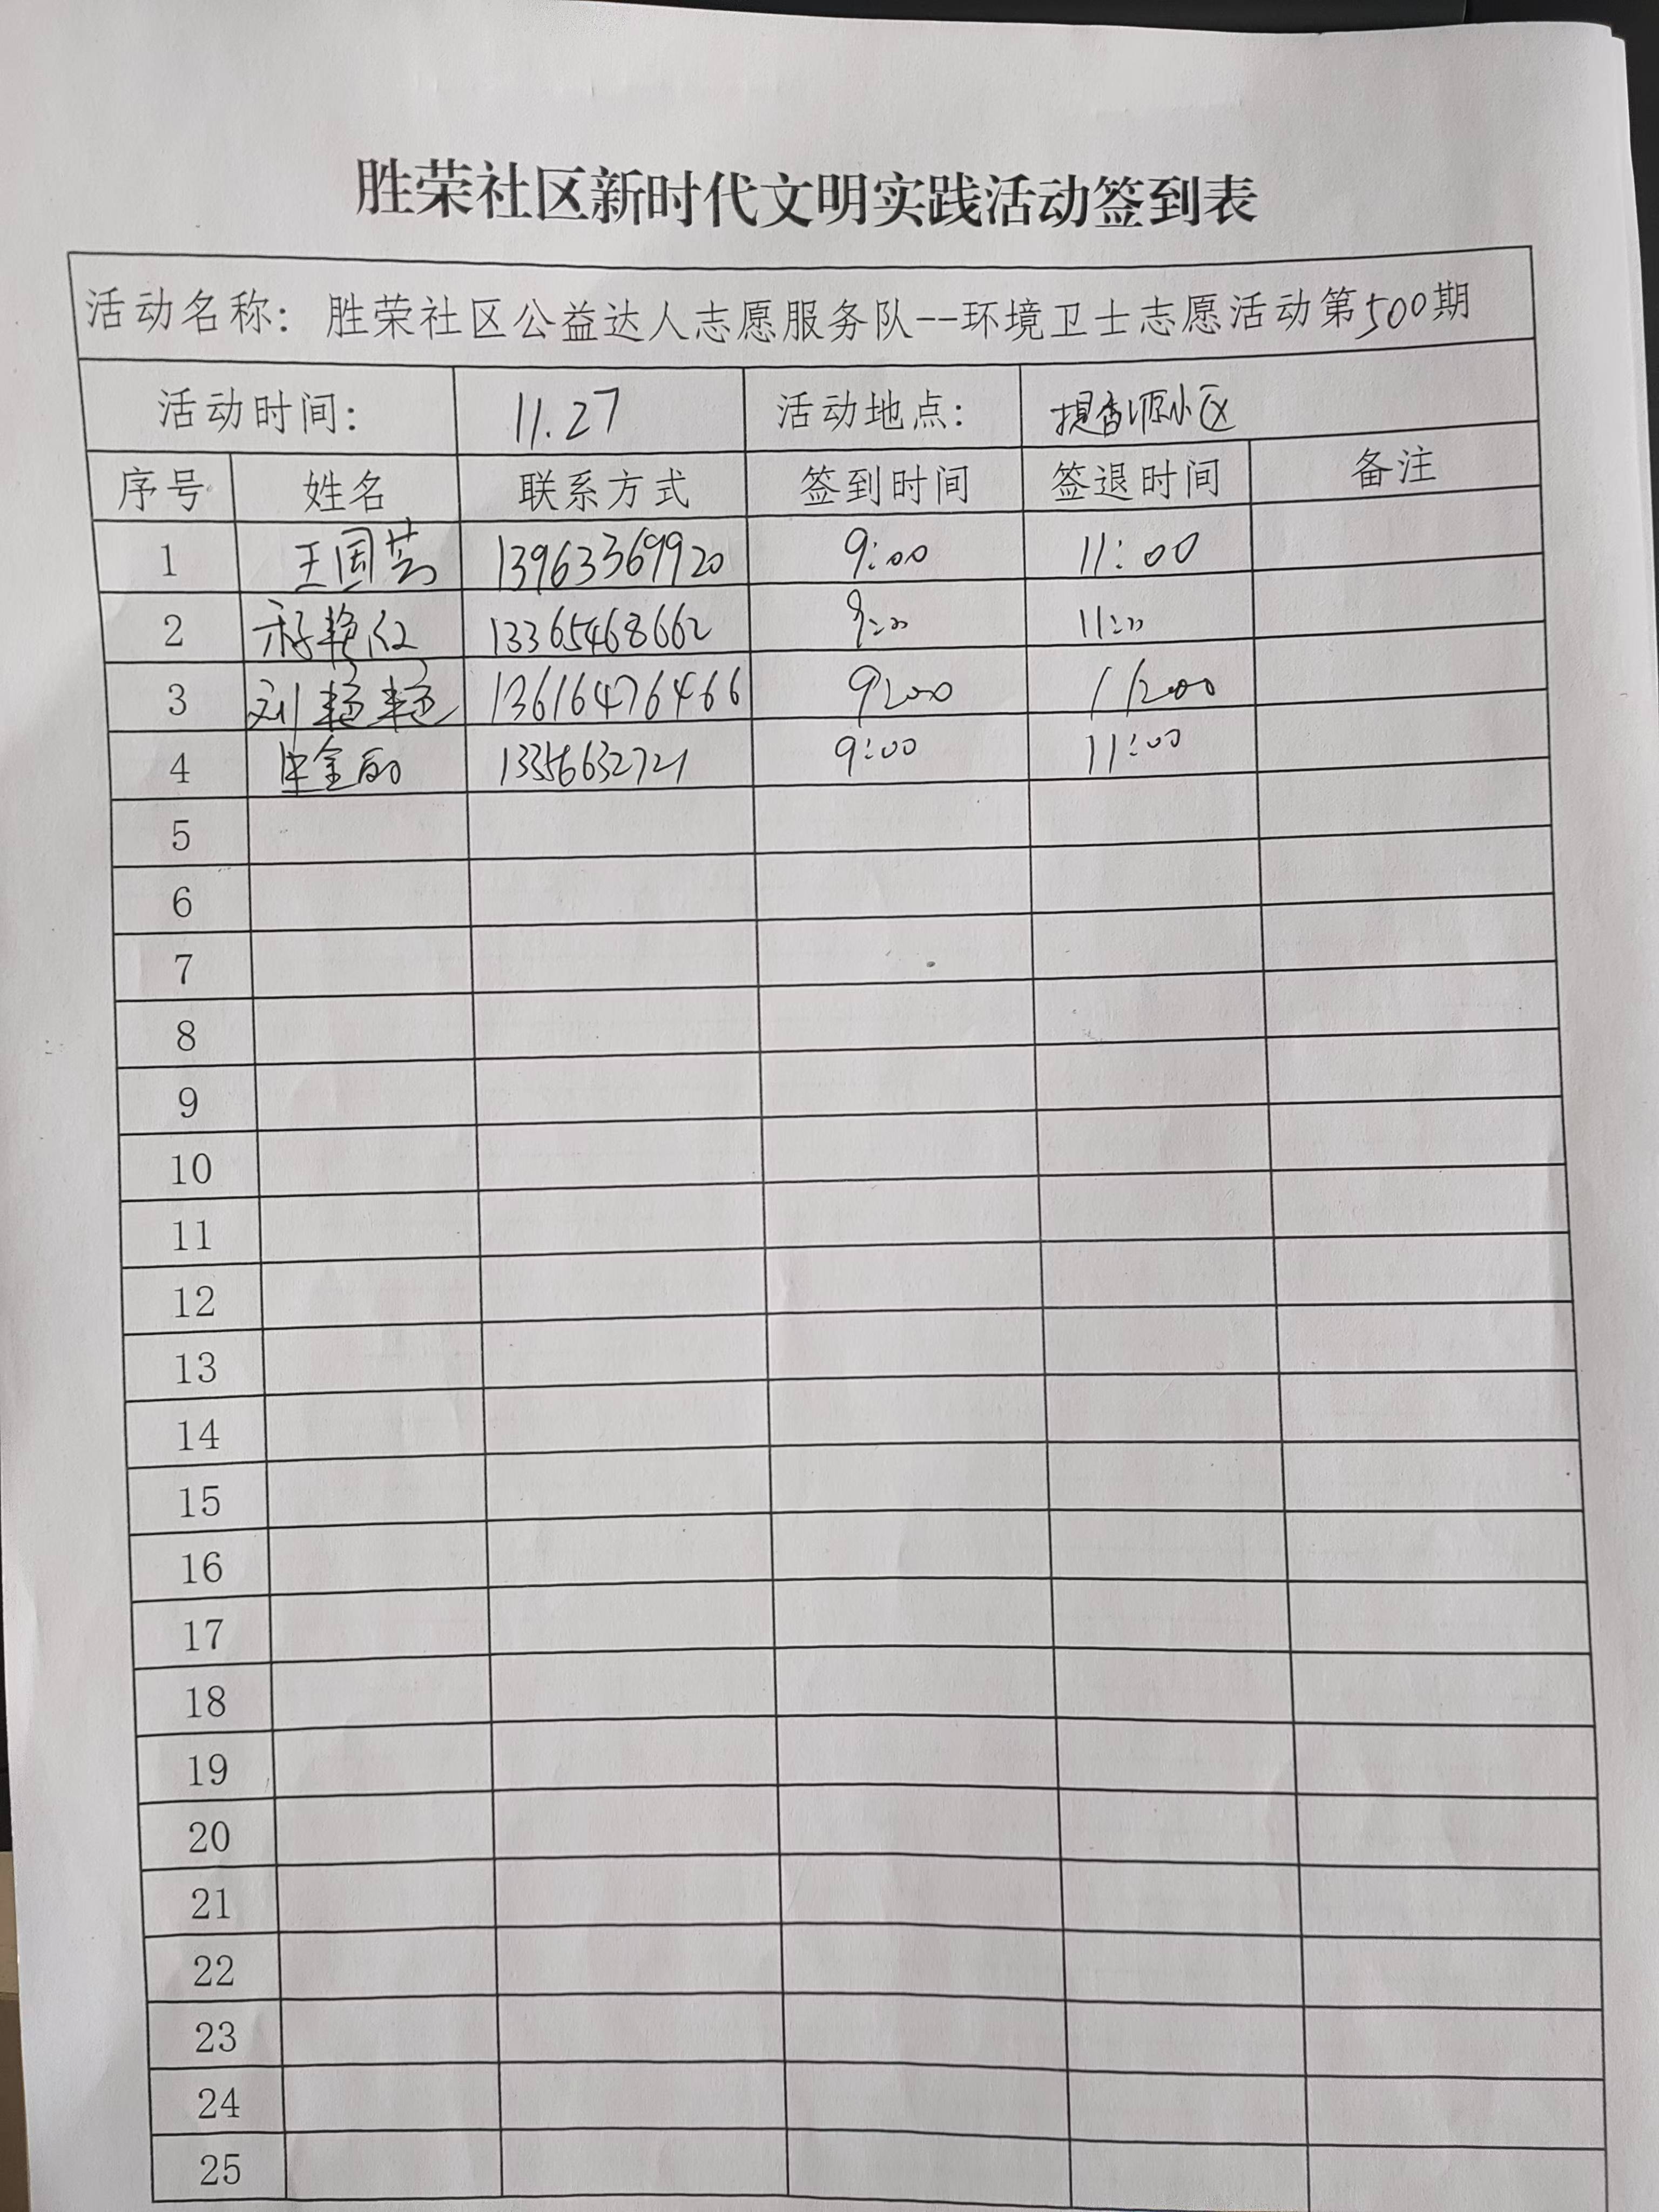 胜荣社区新时代文明实践活动签到表
活动名称：胜荣社区公益达人志愿服务队--环境卫士志愿活动第500期
活动时间： 11.27 活动地点： 提香源小区
序号 姓名 联系方式 签到时间 签退时间 备注
1 王国芸 13963369920 9:00 11:00
2 13365468662 9:00 11:00
3 刘艳艳 13616476466 9:00 11:00
4 13356632721 9:00 11:00
5
6
7
8
9
10
11
12
13
14
15
16
17
18
19
20
21
22
23
24
25